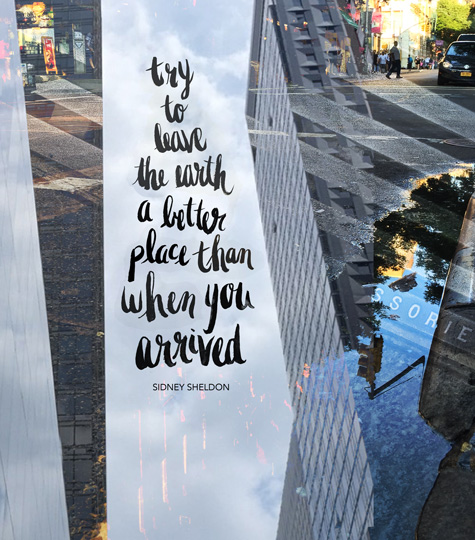 try
to
leave
the earth
a better
place than
when you
arrived
SIDNEY SHELDON
SSORIE